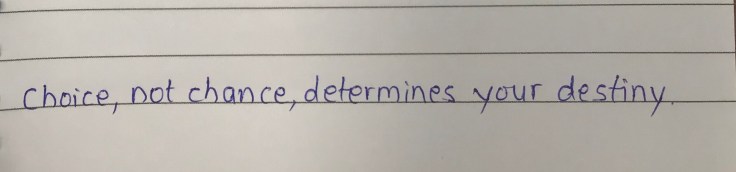 choice, not chance, determines your destiny.